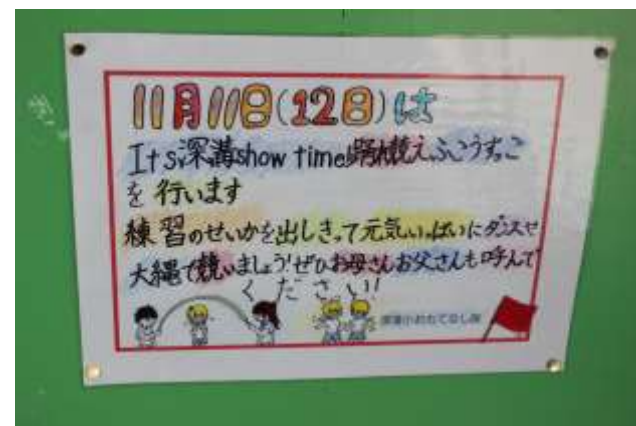 11月11日(12日)は
It's 深溝show time 競え、ふこうずっこ
を 行います
練習のせいかを出しきって元気いっぱいにダンスせ
大縄で競いましょう!ぜひお母さんお父さんも呼んで
ください!
深溝小おもてなし隊